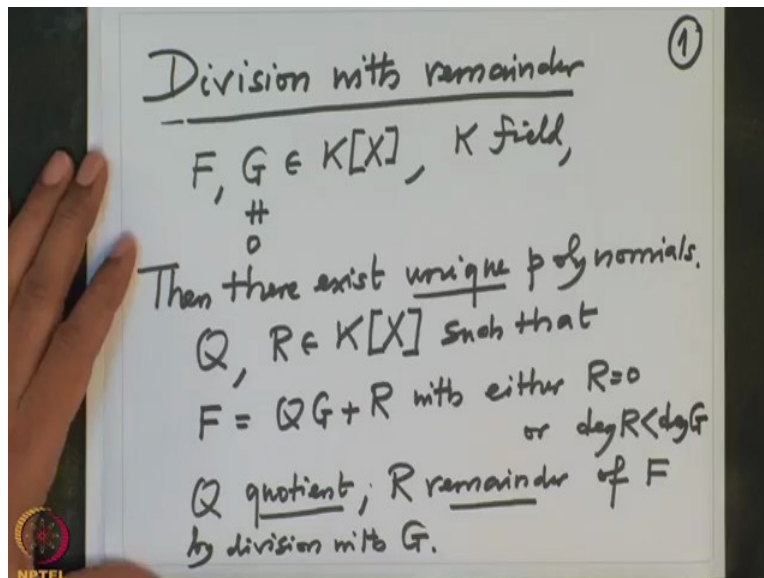 ①
Division with remainder
F, G ∈ K[X], K field,
≠
0
Then there exist unique polynomials.
Q, R ∈ K[X] such that
F = QG + R with either R=0
or deg R < deg G
Q quotient; R remainder of F
by division with G.
NPTEL